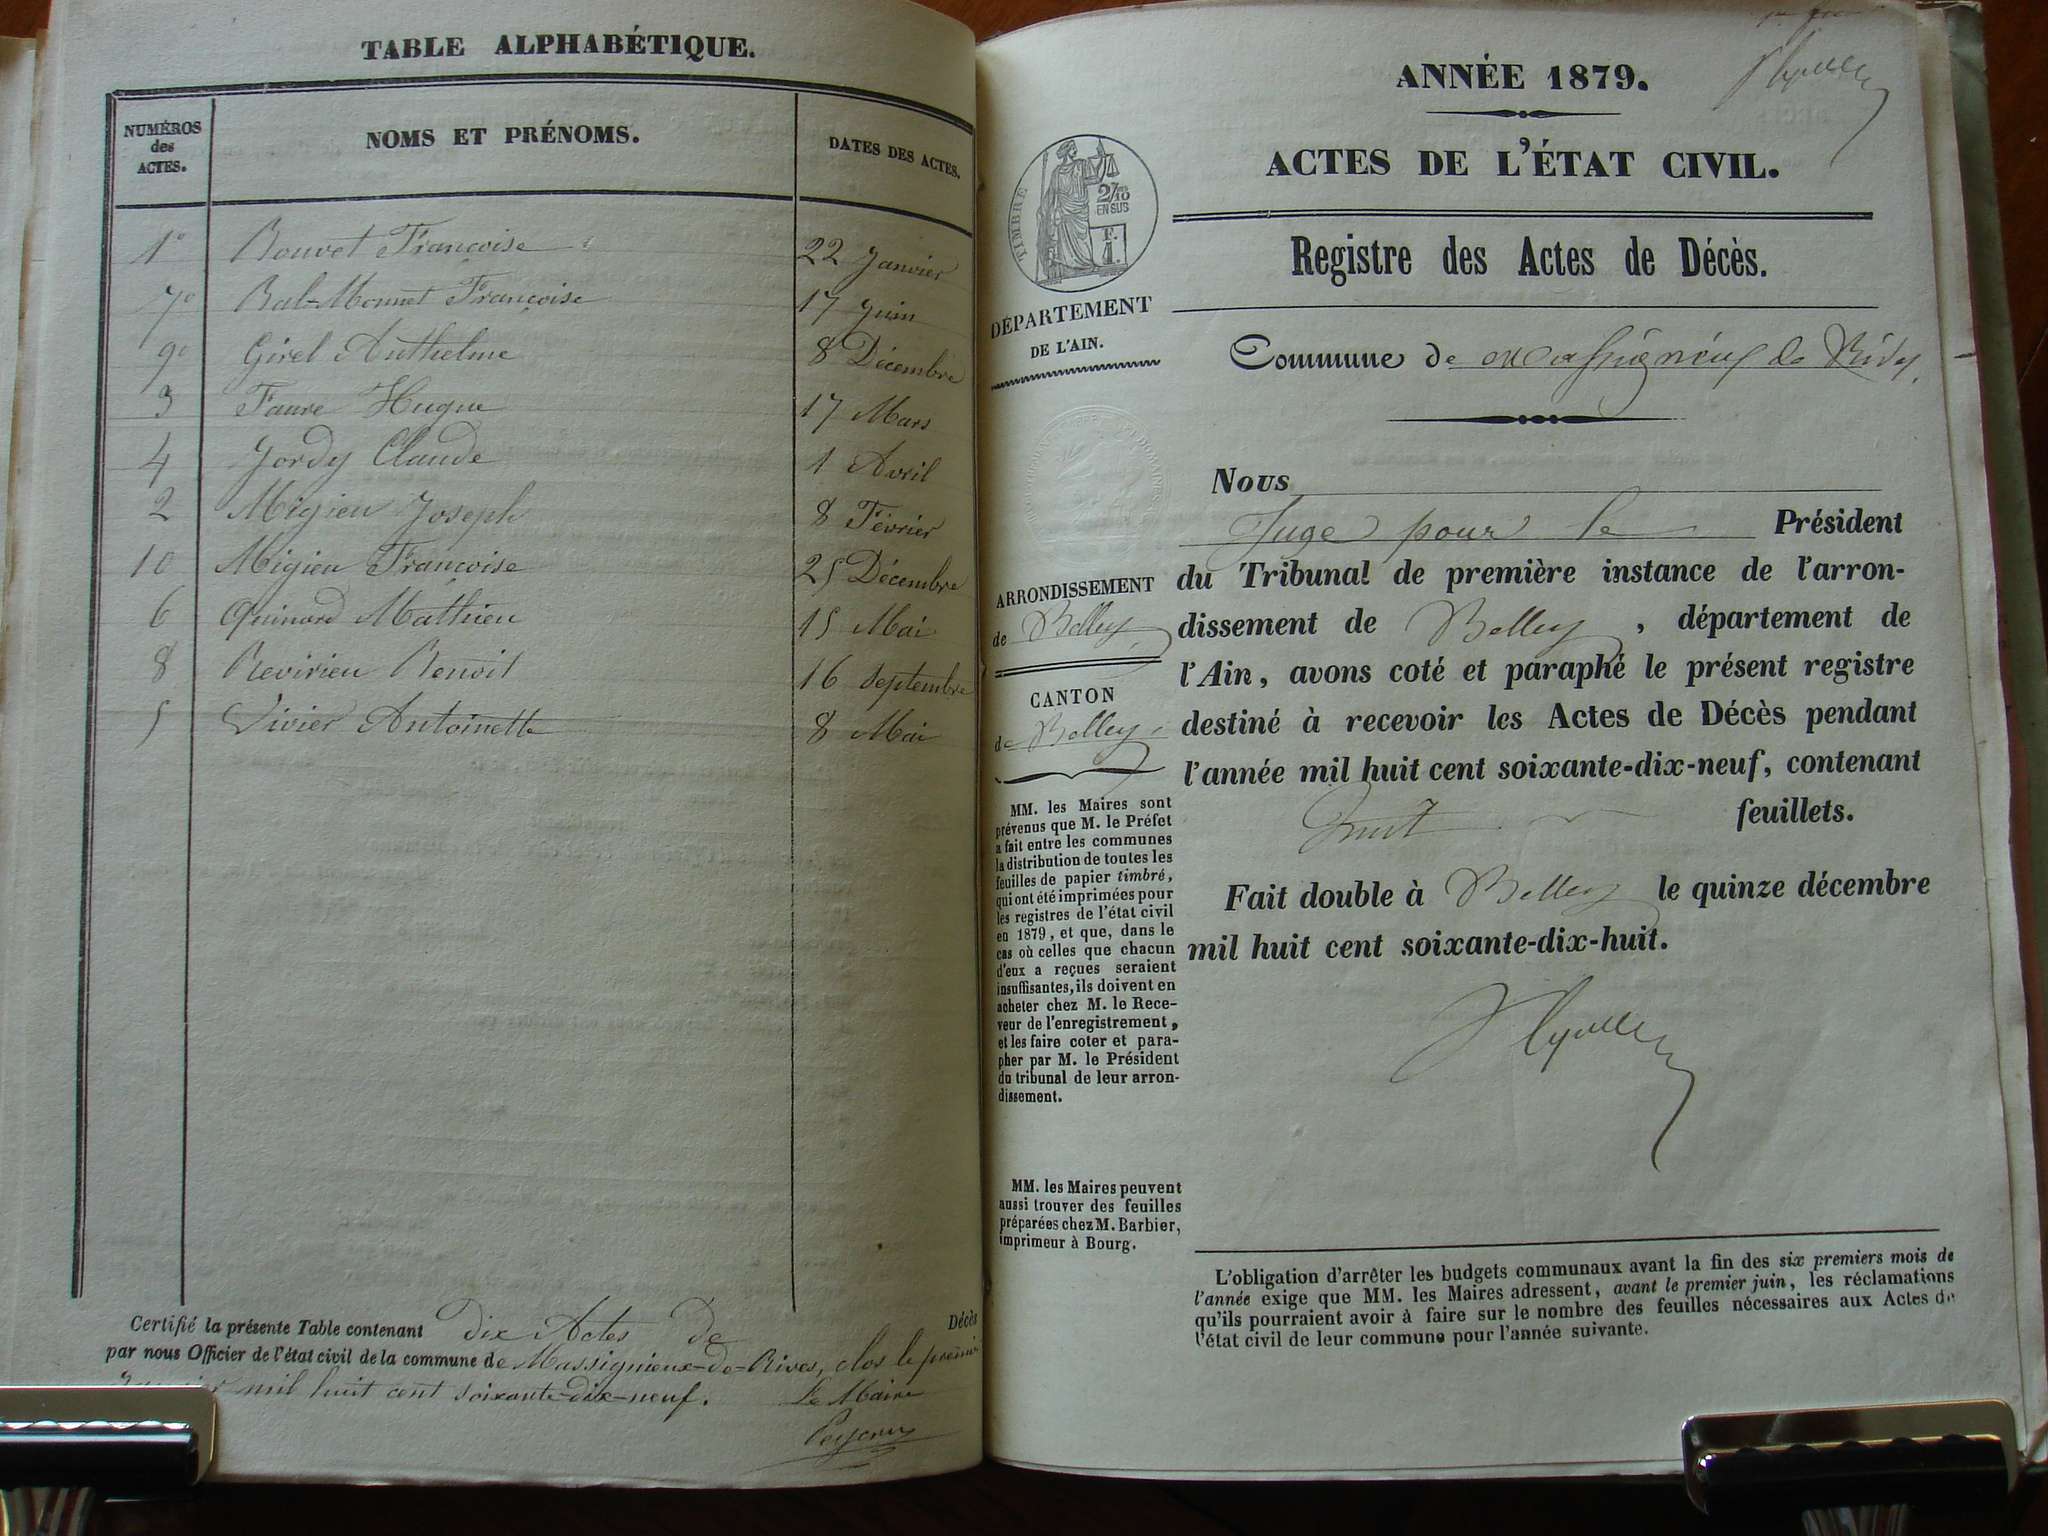 TABLE ALPHABÉTIQUE.
NUMÉROS des ACTES. NOMS ET PRÉNOMS. DATES DES ACTES.
1° Bouvet Françoise 22 Janvier
7° Bal-Monnet Françoise 17 Juin
9° Girel Anthelme 8 Décembre
3 Faure Hugue 17 Mars
4 Jordy Claude 1 Avril
2 Migieu Joseph 8 Février
10 Migieu Françoise 25 Décembre
6 Quinard Mathieu 15 Mai
8 Revirieu Benoit 16 septembre
5 Vivier Antoinette 8 Mai
Certifié la présente Table contenant dix Actes de Décès
par nous Officier de l'état civil de la commune de Massignieux-de-Rives, clos le premier
Janvier mil huit cent soixante-dix-neuf. Le Maire
ANNÉE 1879.
ACTES DE L'ÉTAT CIVIL.
TIMBRE
2/10
EN SUS
F.
1.
Registre des Actes de Décès.
DÉPARTEMENT
DE L'AIN.
Commune de Massignieux de Rives.
Nous
Juge pour le Président
du Tribunal de première instance de l'arron-
dissement de Belley, département de
l'Ain, avons coté et paraphé le présent registre
destiné à recevoir les Actes de Décès pendant
l'année mil huit cent soixante-dix-neuf, contenant
huit feuillets.
Fait double à Belley le quinze décembre
mil huit cent soixante-dix-huit.
ARRONDISSEMENT
de Belley
CANTON
de Belley
MM. les Maires sont
prévenus que M. le Préfet
a fait entre les communes
la distribution de toutes les
feuilles de papier timbré,
qui ont été imprimées pour
les registres de l'état civil
en 1879, et que, dans le
cas où celles que chacun
d'eux a reçues seraient
insuffisantes, ils doivent en
acheter chez M. le Rece-
veur de l'enregistrement,
et les faire coter et para-
pher par M. le Président
du tribunal de leur arron-
dissement.
MM. les Maires peuvent
aussi trouver des feuilles
préparées chez M. Barbier,
imprimeur à Bourg.
L'obligation d'arrêter les budgets communaux avant la fin des six premiers mois de
l'année exige que MM. les Maires adressent, avant le premier juin, les réclamations
qu'ils pourraient avoir à faire sur le nombre des feuilles nécessaires aux Actes de
l'état civil de leur commune pour l'année suivante.